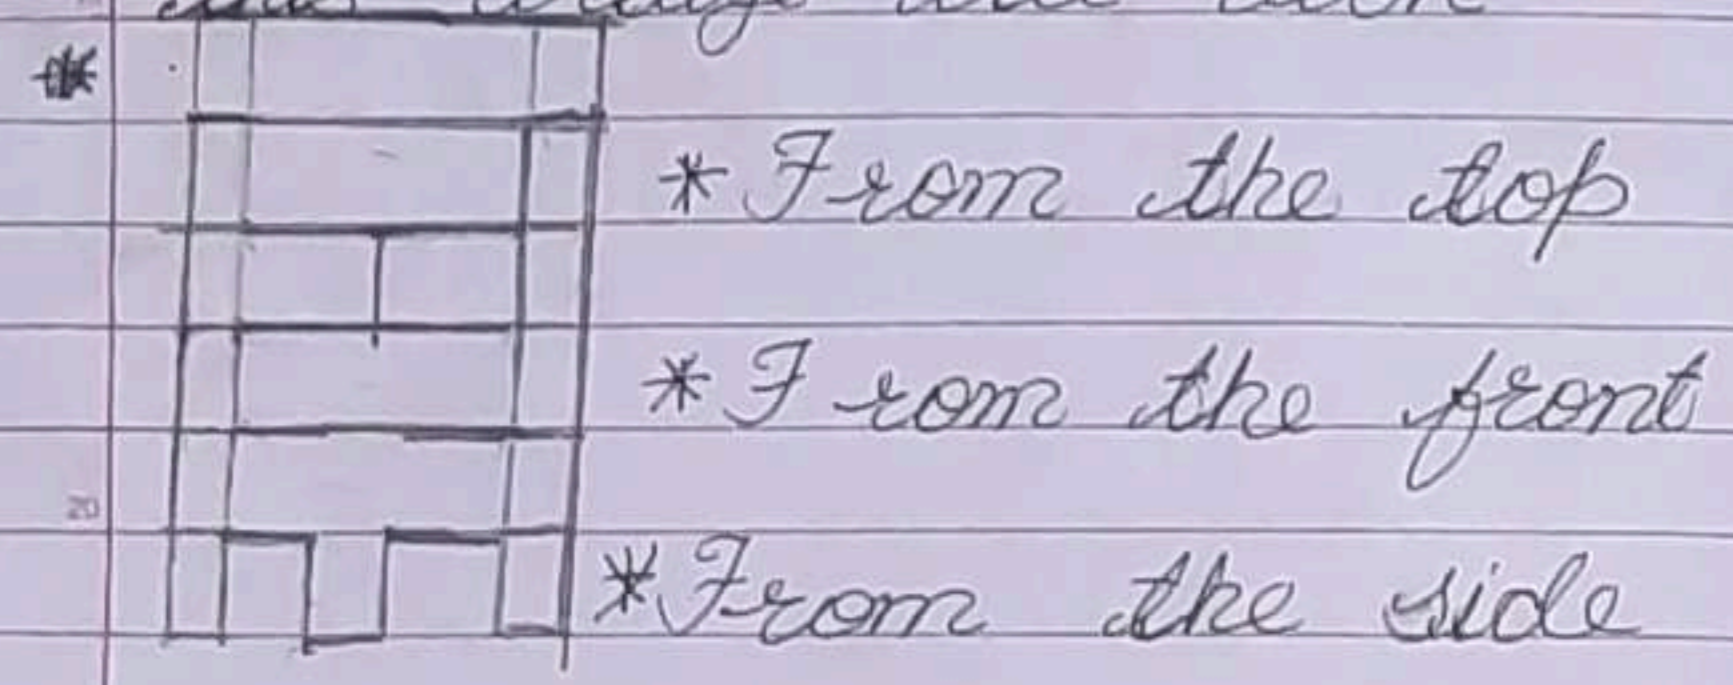 * From the top
* From the front
20
* From the side